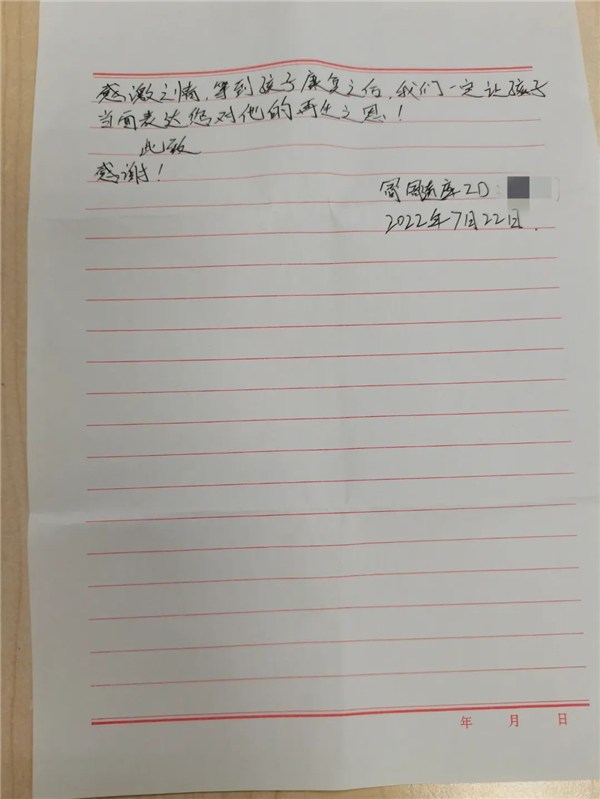 感激之情,等到孩子康复之后,我们一定让孩子
当面表达您对他的再生之恩!
此致
感谢!
2D
2022年7月22日.
年 月 日